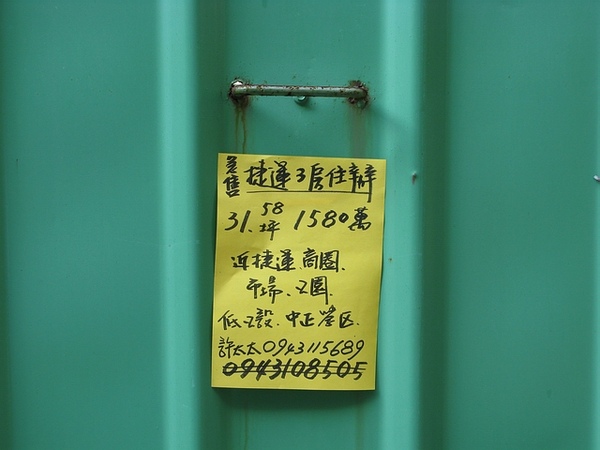 急售 捷運3房住辦
31.58坪 1580萬
近捷運.商圈.
市場、公園.
低公設.中正學区.
許太太0943115689
0943108505